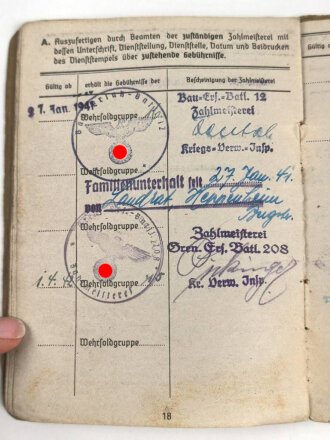 A. Auszufertigen durch Beamten der zuständigen Zahlmeisterei mit
dessen Unterschrift, Dienststellung, Dienststelle, Datum und Beidrucken
des Dienststempels über zustehende Gebührnisse.
Gültig ab
erhält die Gebührnisse der
Bescheinigung der Zahlmeisterei
27. Jan. 1941
Wehrsoldgruppe
Bau-Ers.-Batl. 12
Zahlmeisterei
Kriegs-Verw.-Insp.
Wehrsoldgruppe
Familienunterhalt seit 27. Jan. 41
von Landrat, Heppenheim
Bergstr.
Wehrsoldgruppe
Zahlmeisterei
Gren. Ers. Batl. 208
1.4.
Kr. Verw. Insp.
Wehrsoldgruppe
Wehrsoldgruppe
18